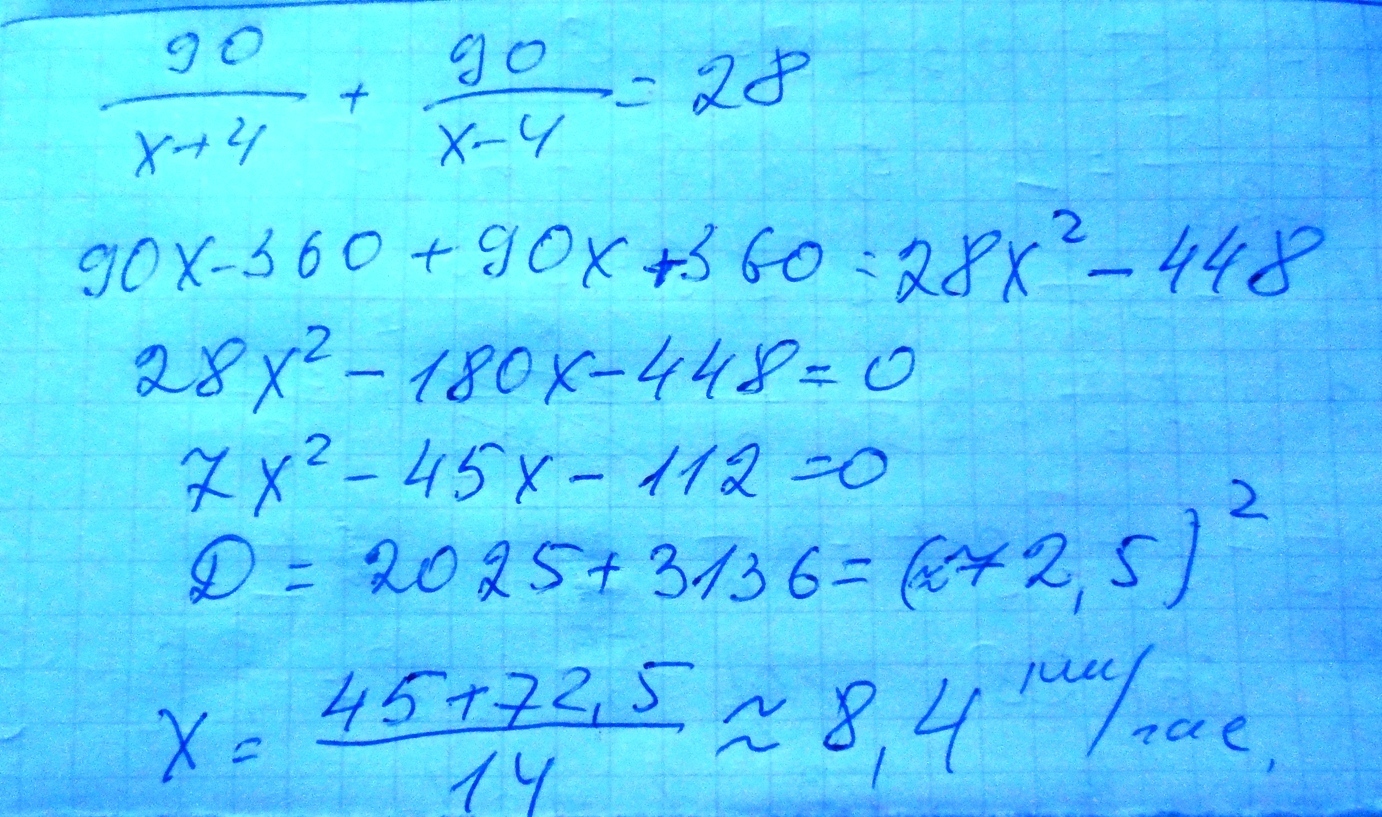 90/(x+4) + 90/(x-4) = 28
90x-360+90x+360=28x²-448
28x²-180x-448=0
7x²-45x-112=0
D=2025+3136=(≈72,5)²
x=(45+72,5)/14≈8,4 км/час.